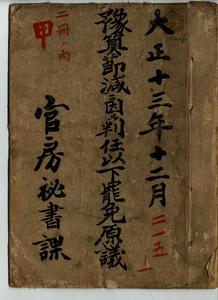 大正十三年十二月
二一五ノ一
豫算節減ニ因ル判任以下罷免原議
二冊ノ内
甲
官房秘書課